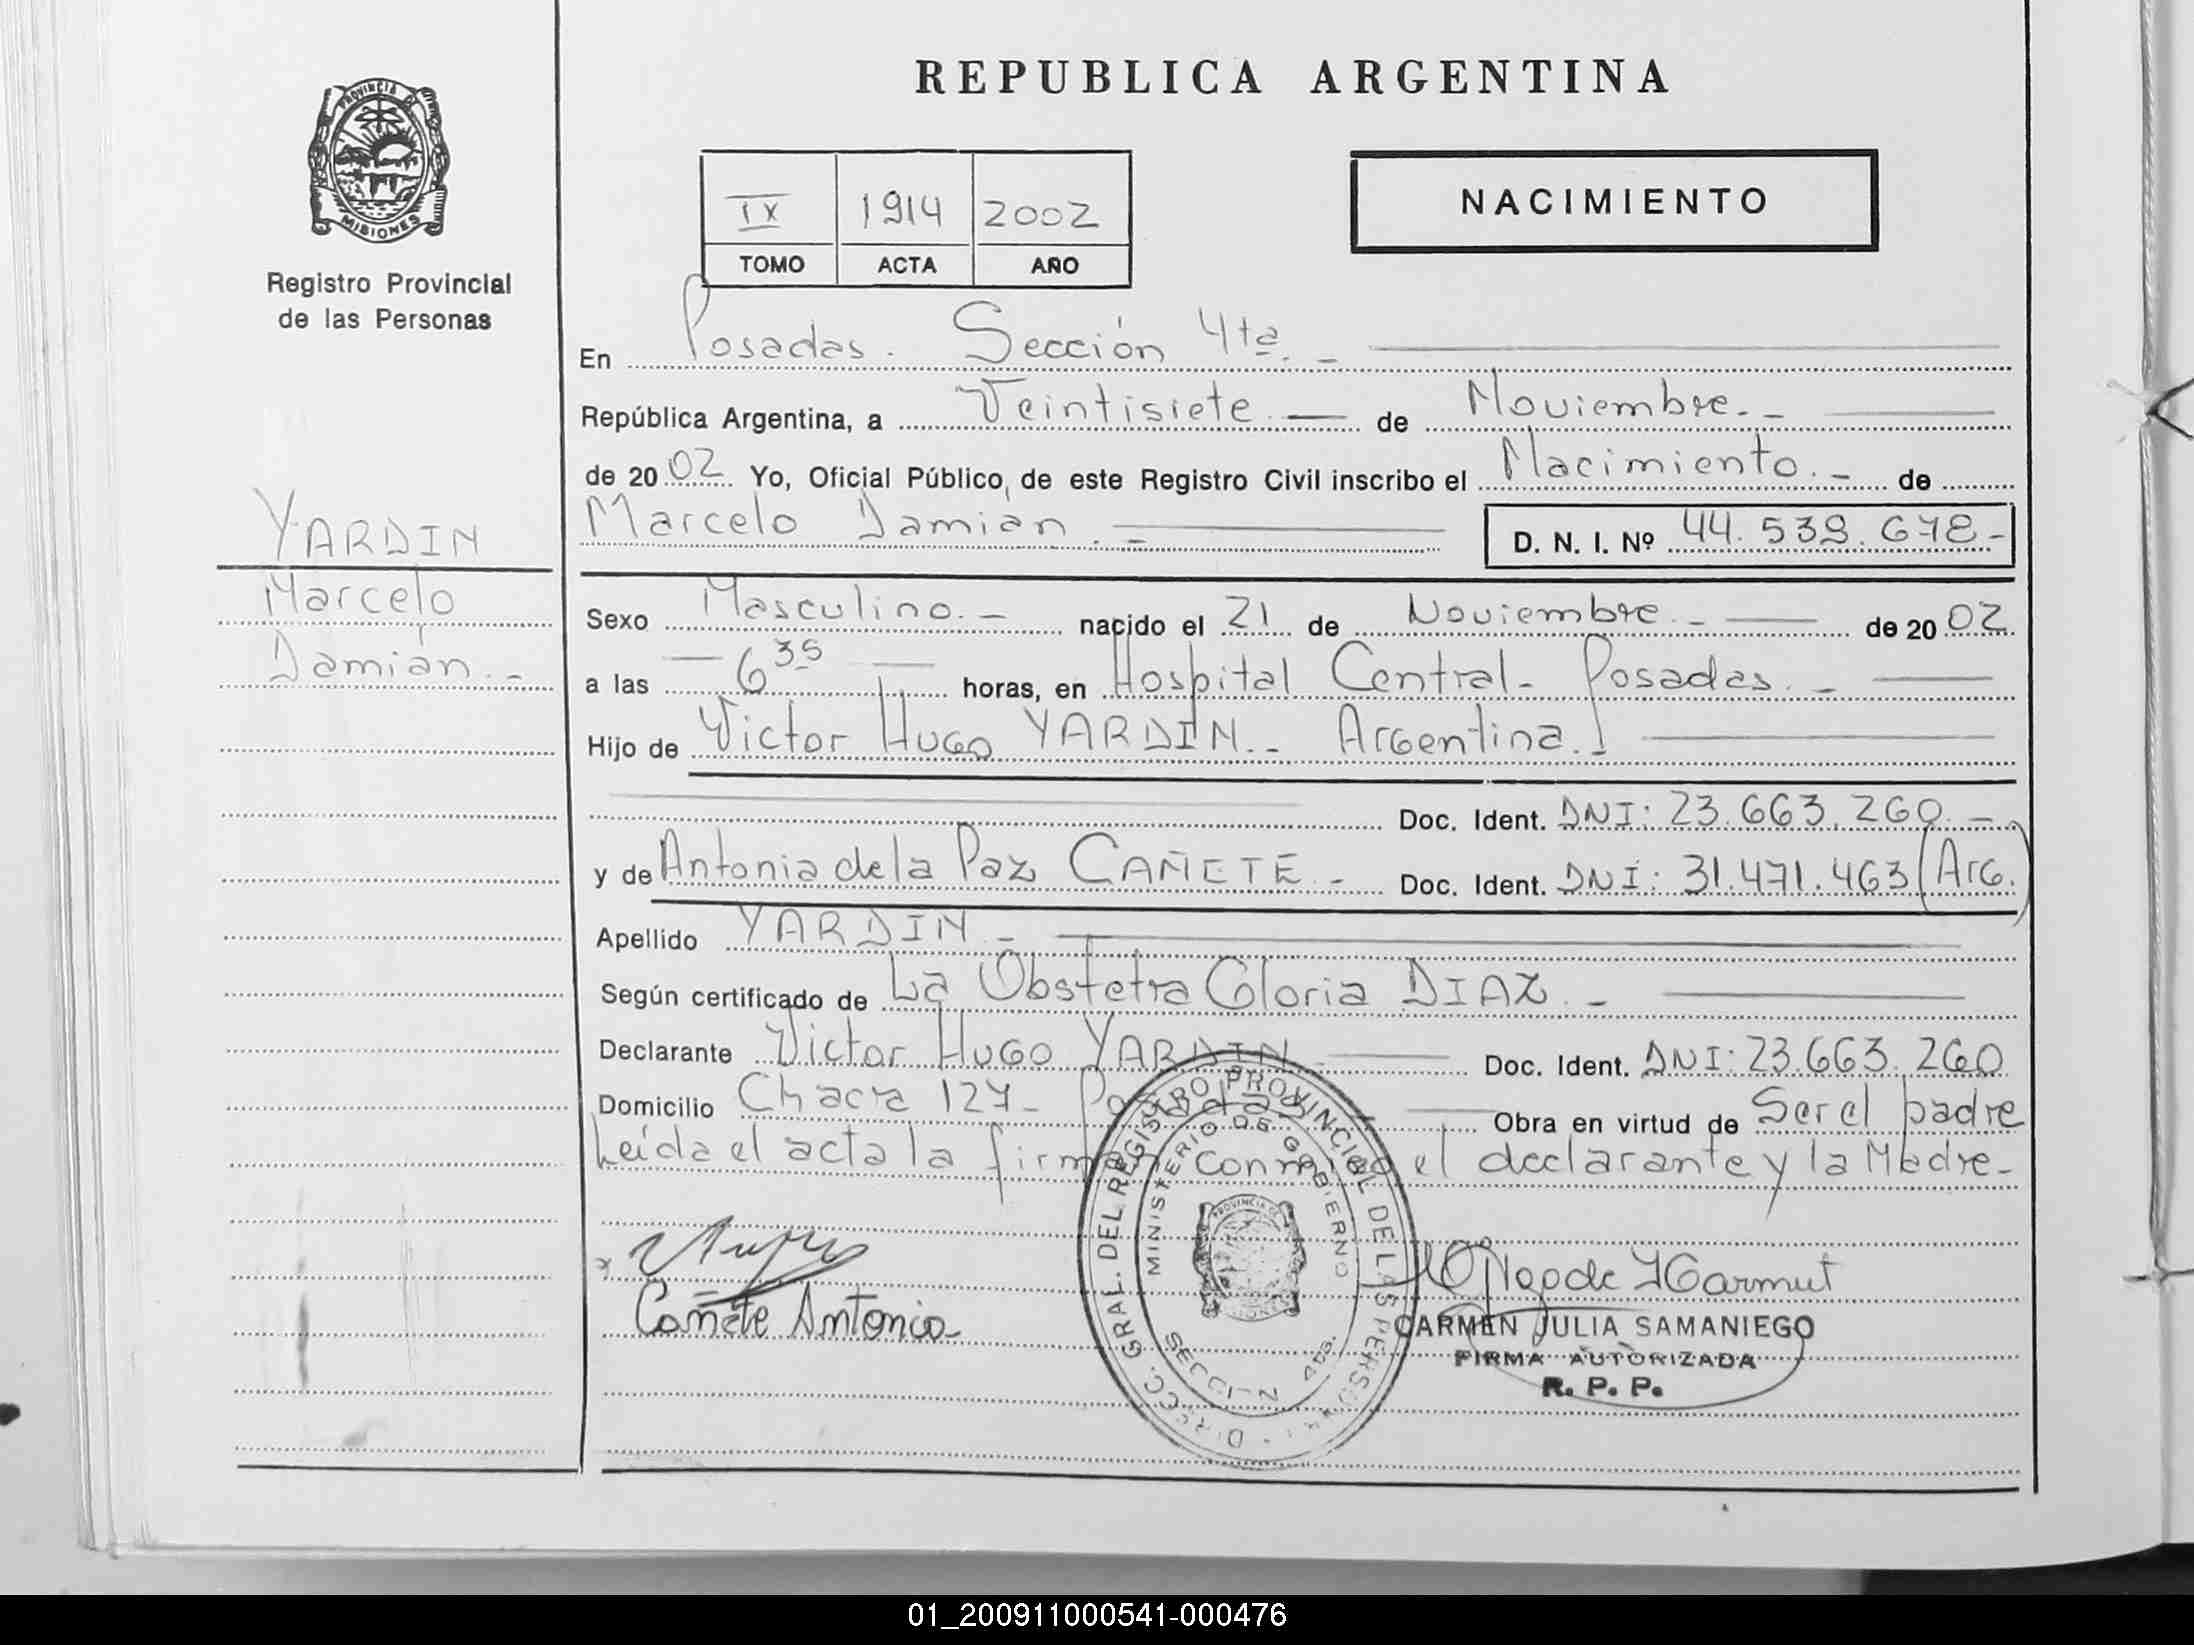 REPUBLICA ARGENTINA
PROVINCIA DE
MISIONES
Registro Provincial
de las Personas
IX 1914 2002
TOMO ACTA AÑO
NACIMIENTO
En Posadas. Sección 4ta. -
República Argentina, a Veintisiete — de Noviembre. -
de 2002 Yo, Oficial Público, de este Registro Civil inscribo el Nacimiento. - de
Marcelo Damian. - D. N. I. Nº 44.539.678-
YARDIN
Marcelo
Damián. -
Sexo Masculino. - nacido el 21 de Noviembre. - de 2002
a las — 6 35 — horas, en Hospital Central - Posadas. -
Hijo de Victor Hugo YARDIN. - Argentina.
Doc. Ident. DNI: 23.663.260. -
y de Antonia de la Paz CAÑETE - Doc. Ident. DNI: 31.471.463 (Arg.)
Apellido YARDIN -
Según certificado de La Obstetra Gloria DIAZ. -
Declarante Victor Hugo YARDIN Doc. Ident. DNI: 23.663.260
Domicilio Chacra 127 - Posadas Obra en virtud de Ser el padre
Leída el acta la firman conmigo el declarante y la Madre -
DIRECC. GRAL. DEL REGISTRO PROVINCIAL DE LAS PERSONAS
MINISTERIO DE GOBIERNO
Cañete Antonia
CARMEN JULIA SAMANIEGO
FIRMA AUTORIZADA
R. P. P.
01_200911000541-000476